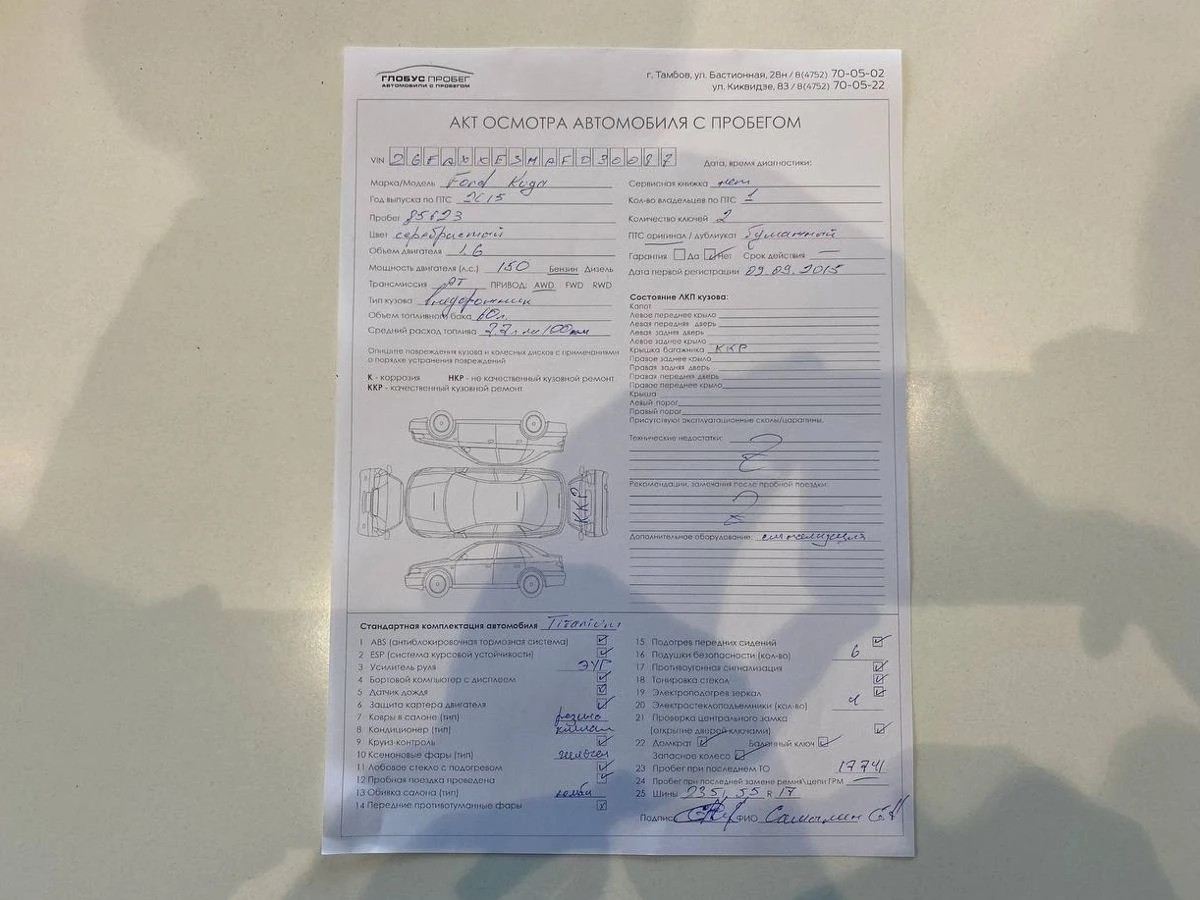 ГЛОБУС ПРОБЕГ
АВТОМОБИЛИ С ПРОБЕГОМ
г. Тамбов, ул. Бастионная, 28н / 8(4752) 70-05-02
ул. Киквидзе, 83 / 8(4752) 70-05-22
АКТ ОСМОТРА АВТОМОБИЛЯ С ПРОБЕГОМ
VIN
Дата, время диагностики:
Марка/Модель Ford Kuga
Год выпуска по ПТС 2015
Пробег 85623
Цвет серебристый
Объем двигателя 1.6
Мощность двигателя (л.с.) 150 Бензин Дизель
Трансмиссия АТ ПРИВОД: AWD FWD RWD
Тип кузова внедорожник
Объем топливного бака 60л.
Средний расход топлива 7.7л на/100км
Опишите повреждения кузова и колесных дисков с примечаниями
о порядке устранения повреждений
К - коррозия НКР - не качественный кузовной ремонт
ККР - качественный кузовной ремонт
ККР
Сервисная книжка нет
Кол-во владельцев по ПТС 1
Количество ключей 2
ПТС оригинал / дубликат бумажный
Гарантия Да Нет Срок действия
Дата первой регистрации 09.09.2015
Состояние ЛКП кузова:
Капот
Левое переднее крыло
Левая передняя дверь
Левая задняя дверь
Левое заднее крыло
Крышка багажника ККР
Правое заднее крыло
Правая задняя дверь
Правая передняя дверь
Правое переднее крыло
Крыша
Левый порог
Правый порог
Присутствуют эксплуатационные сколы/царапины.
Технические недостатки:
Рекомендации, замечания после пробной поездки:
Дополнительное оборудование: сигнализация
Стандартная комплектация автомобиля Titanium
1 ABS (антиблокировочная тормозная система)
2 ESP (система курсовой устойчивости)
3 Усилитель руля ЭУР
4 Бортовой компьютер с дисплеем
5 Датчик дождя
6 Защита картера двигателя
7 Ковры в салоне (тип) резина
8 Кондиционер (тип) климат
9 Круиз-контроль
10 Ксеноновые фары (тип) галоген
11 Лобовое стекло с подогревом
12 Пробная поездка проведена
13 Обивка салона (тип) комби
14 Передние противотуманные фары
15 Подогрев передних сидений
16 Подушки безопасности (кол-во) 6
17 Противоугонная сигнализация
18 Тонировка стекол
19 Электроподогрев зеркал
20 Электростеклоподъемники (кол-во) 4
21 Проверка центрального замка
(открытие дверей ключами)
22 Домкрат Баланный ключ
Запасное колесо
23 Пробег при последнем ТО 17741
24 Пробег при последней замене ремня/цепи ГРМ
25 Шины 235, 55 R 17
Подпись ФИО